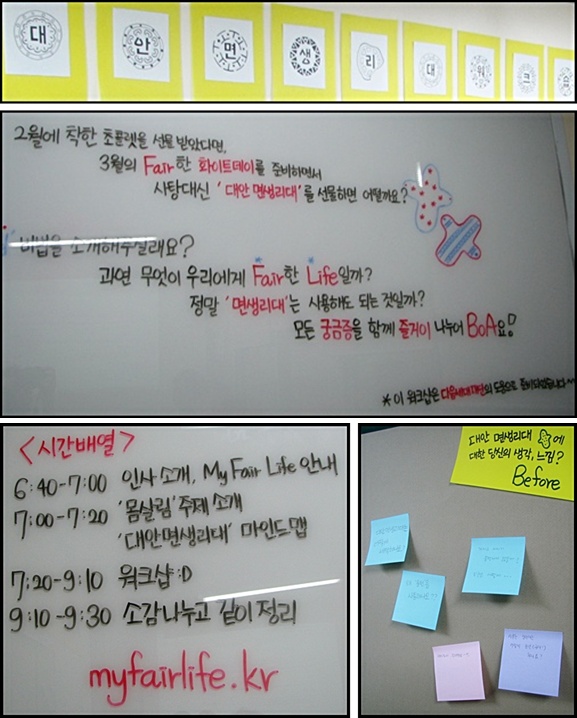 대안면생리대워크숍
2월에 착한 초콜렛을 선물 받았다면,
3월의 Fair한 화이트데이를 준비하면서
사탕대신 '대안 면생리대'를 선물하면 어떨까요?
비법을 소개해주실래요?
과연 무엇이 우리에게 Fair한 Life일까?
정말 '면생리대'는 사용해도 되는 것일까?
모든 궁금증을 함께 즐거이 나누어 BoA요!
* 이 워크샵은 다음세대재단의 도움으로 준비되었습니다~
<시간배열>
6:40-7:00 인사 소개, My Fair Life 안내
7:00-7:20 '몸살림' 주제 소개
'대안면생리대' 마인드맵
7:20-9:10 워크샵 :D
9:10-9:30 소감나누고 같이 정리
myfairlife.kr
대안 면생리대 에
대한 당신의 생각, 느낌?
Before